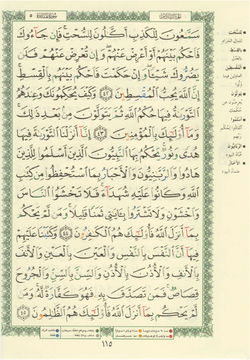 سَمَّٰعُونَ لِلْكَذِبِ أَكَّٰلُونَ لِلسُّحْتِ ۚ فَإِن جَآءُوكَ
فَٱحْكُم بَيْنَهُمْ أَوْ أَعْرِضْ عَنْهُمْ ۖ وَإِن تُعْرِضْ عَنْهُمْ فَلَن
يَضُرُّوكَ شَيْـًٔا ۖ وَإِنْ حَكَمْتَ فَٱحْكُم بَيْنَهُم بِٱلْقِسْطِ ۚ
إِنَّ ٱللَّهَ يُحِبُّ ٱلْمُقْسِطِينَ ٤٢ وَكَيْفَ يُحَكِّمُونَكَ وَعِندَهُمُ
ٱلتَّوْرَىٰةُ فِيهَا حُكْمُ ٱللَّهِ ثُمَّ يَتَوَلَّوْنَ مِنۢ بَعْدِ ذَٰلِكَ ۚ
وَمَآ أُو۟لَٰٓئِكَ بِٱلْمُؤْمِنِينَ ٤٣ إِنَّآ أَنزَلْنَا ٱلتَّوْرَىٰةَ فِيهَا
هُدًى وَنُورٌ ۚ يَحْكُمُ بِهَا ٱلنَّبِيُّونَ ٱلَّذِينَ أَسْلَمُوا۟ لِلَّذِينَ
هَادُوا۟ وَٱلرَّبَّٰنِيُّونَ وَٱلْأَحْبَارُ بِمَا ٱسْتُحْفِظُوا۟ مِن كِتَٰبِ
ٱللَّهِ وَكَانُوا۟ عَلَيْهِ شُهَدَآءَ ۚ فَلَا تَخْشَوُا۟ ٱلنَّاسَ
وَٱخْشَوْنِ وَلَا تَشْتَرُوا۟ بِـَٔايَٰتِى ثَمَنًا قَلِيلًا ۚ وَمَن لَّمْ يَحْكُم
بِمَآ أَنزَلَ ٱللَّهُ فَأُو۟لَٰٓئِكَ هُمُ ٱلْكَٰفِرُونَ ٤٤ وَكَتَبْنَا عَلَيْهِمْ
فِيهَآ أَنَّ ٱلنَّفْسَ بِٱلنَّفْسِ وَٱلْعَيْنَ بِٱلْعَيْنِ وَٱلْأَنفَ
بِٱلْأَنفِ وَٱلْأُذُنَ بِٱلْأُذُنِ وَٱلسِّنَّ بِٱلسِّنِّ وَٱلْجُرُوحَ
قِصَاصٌ ۚ فَمَن تَصَدَّقَ بِهِۦ فَهُوَ كَفَّارَةٌ لَّهُۥ ۚ وَمَن
لَّمْ يَحْكُم بِمَآ أَنزَلَ ٱللَّهُ فَأُو۟لَٰٓئِكَ هُمُ ٱلظَّٰلِمُونَ ٤٥
١١٥